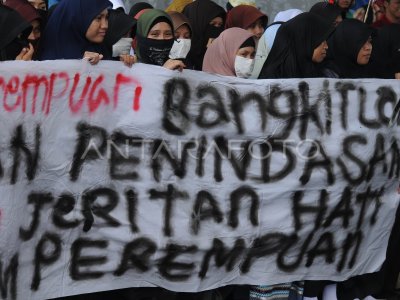 erempuan Bangkit La
AN PENINDASAN
JERITAN HATI
PEREMPUAN
ANTARAFOTO